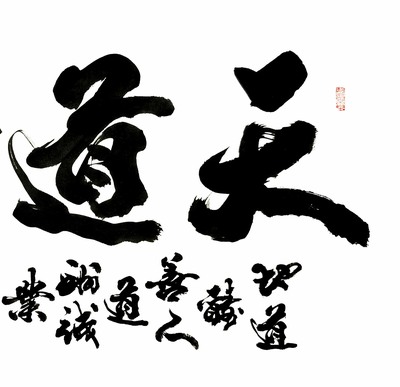 天道
地道酬善人道酬誠業